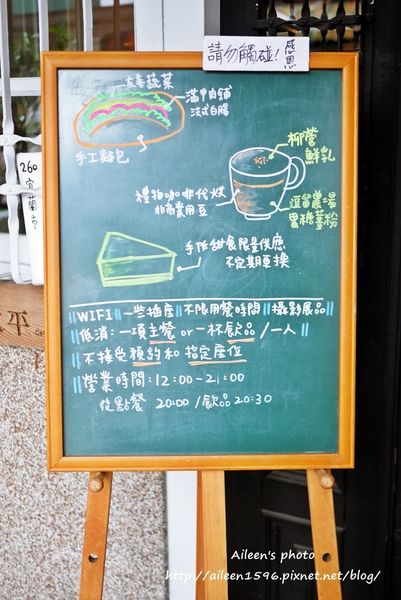 請勿觸碰! 感恩
友善蔬菜
滿甲肉舖
法式白腸
手工麵包
柳營
鮮乳
禮拍咖啡代炒
非商業用豆
逗留農場
黑糖薑粉
手作甜食限量供應
不定期更換
WIFI 一些插座 不限用餐時間 攝影展品
低消:一項主餐 or 一杯飲品 / 一人
不接受預約和 指定座位
營業時間:12:00-21:00
點餐 20:00 / 飲品 20:30
260
宜蘭市
平
Aileen's photo
http://aileen1596.pixnet.net/blog/